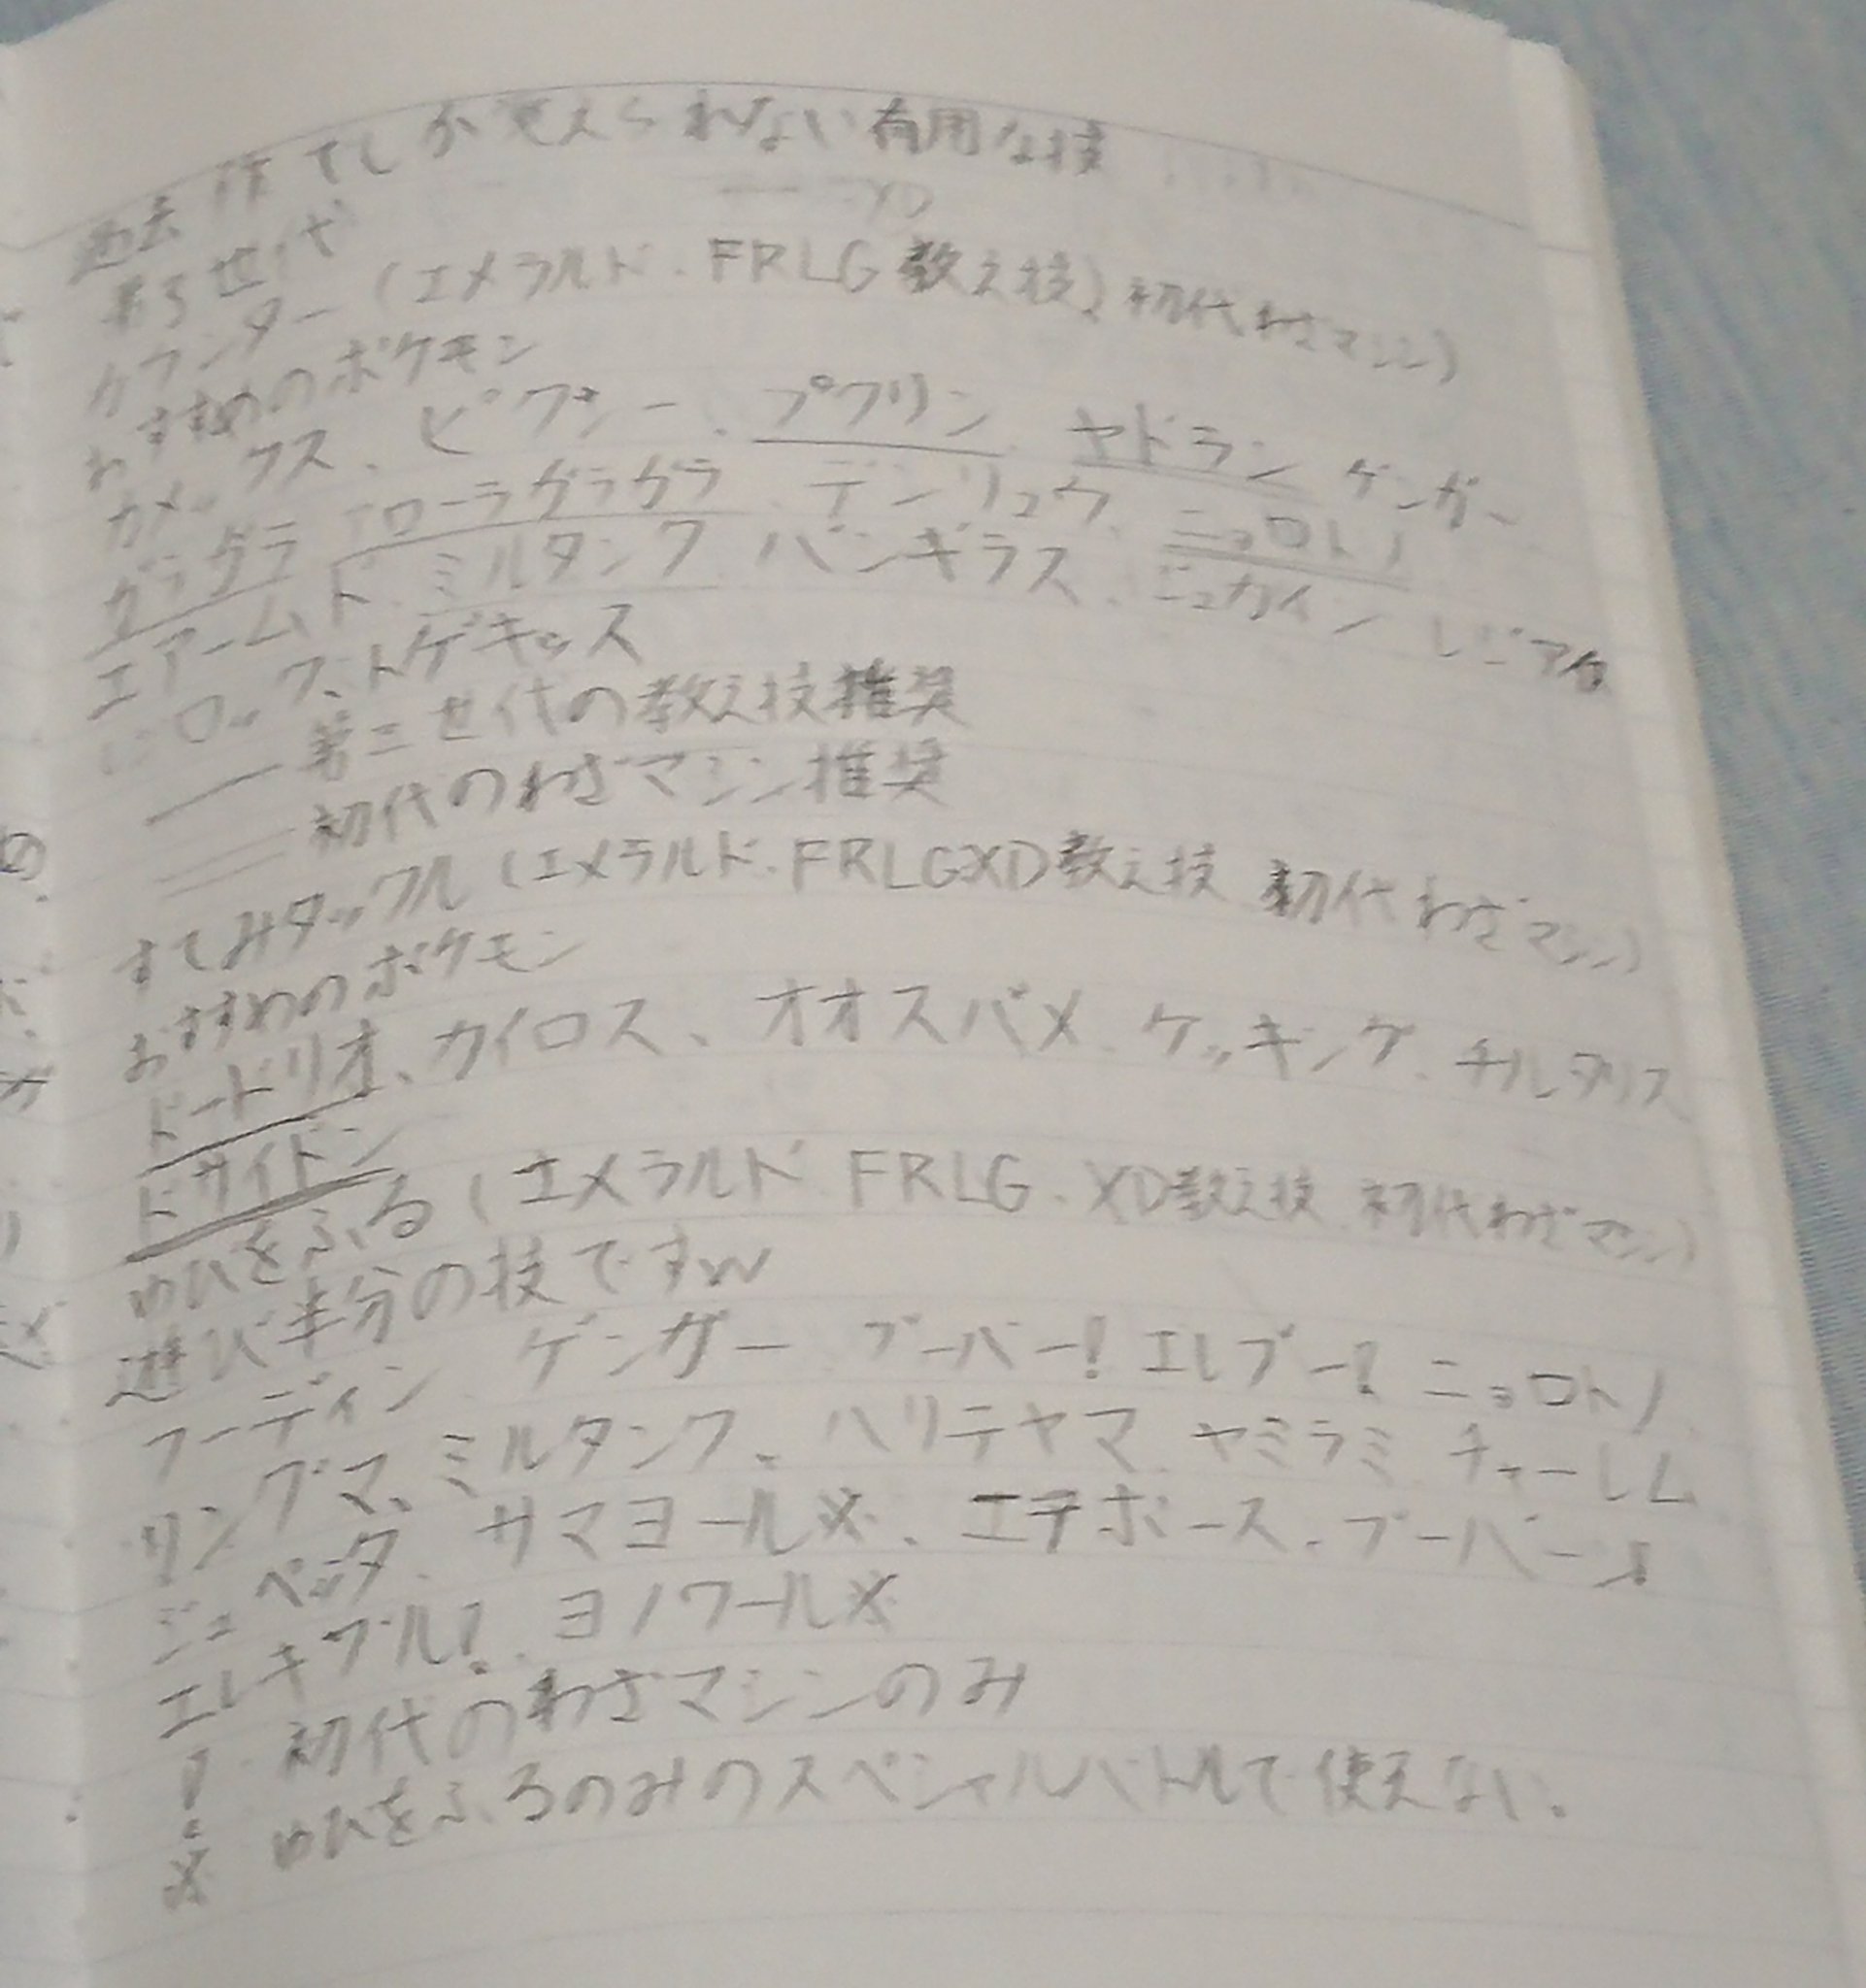 過去作でしか覚えられない有用な技
XD
第3世代
カウンター(エメラルド、FRLG教え技)初代わざマシン)
おすすめのポケモン
カメックス、ピクシー、プクリン、ヤドラン ゲンガー
ガラガラ アローラガラガラ、デンリュウ、ニョロトノ
エアームド、ミルタンク バンギラス、ジュカイン レジアイ
レジロック、トゲキッス
― 第三世代の教え技推奨
初代のわざマシン推奨
すてみタックル(エメラルド、FRLGXD教え技 初代わざマシン)
おすすめのポケモン
ドードリオ、カイロス、オオスバメ、ケッキング、チルタリス
ドサイドン
ゆびをふる(エメラルド、FRLG、XD教え技 初代わざマシン)
遊び半分の技ですw
フーディン、ゲンガー ブーバー! エレブー! ニョロトノ
リングマ、ミルタンク、ハリテヤマ、ヤミラミ、チャーレム
ジュペッタ、サマヨール※、エテボース、ブーバーン!
エレキブル!、ヨノワール※
! 初代のわざマシンのみ
※ ゆびをふるのみのスペシャルバトルで使えない。